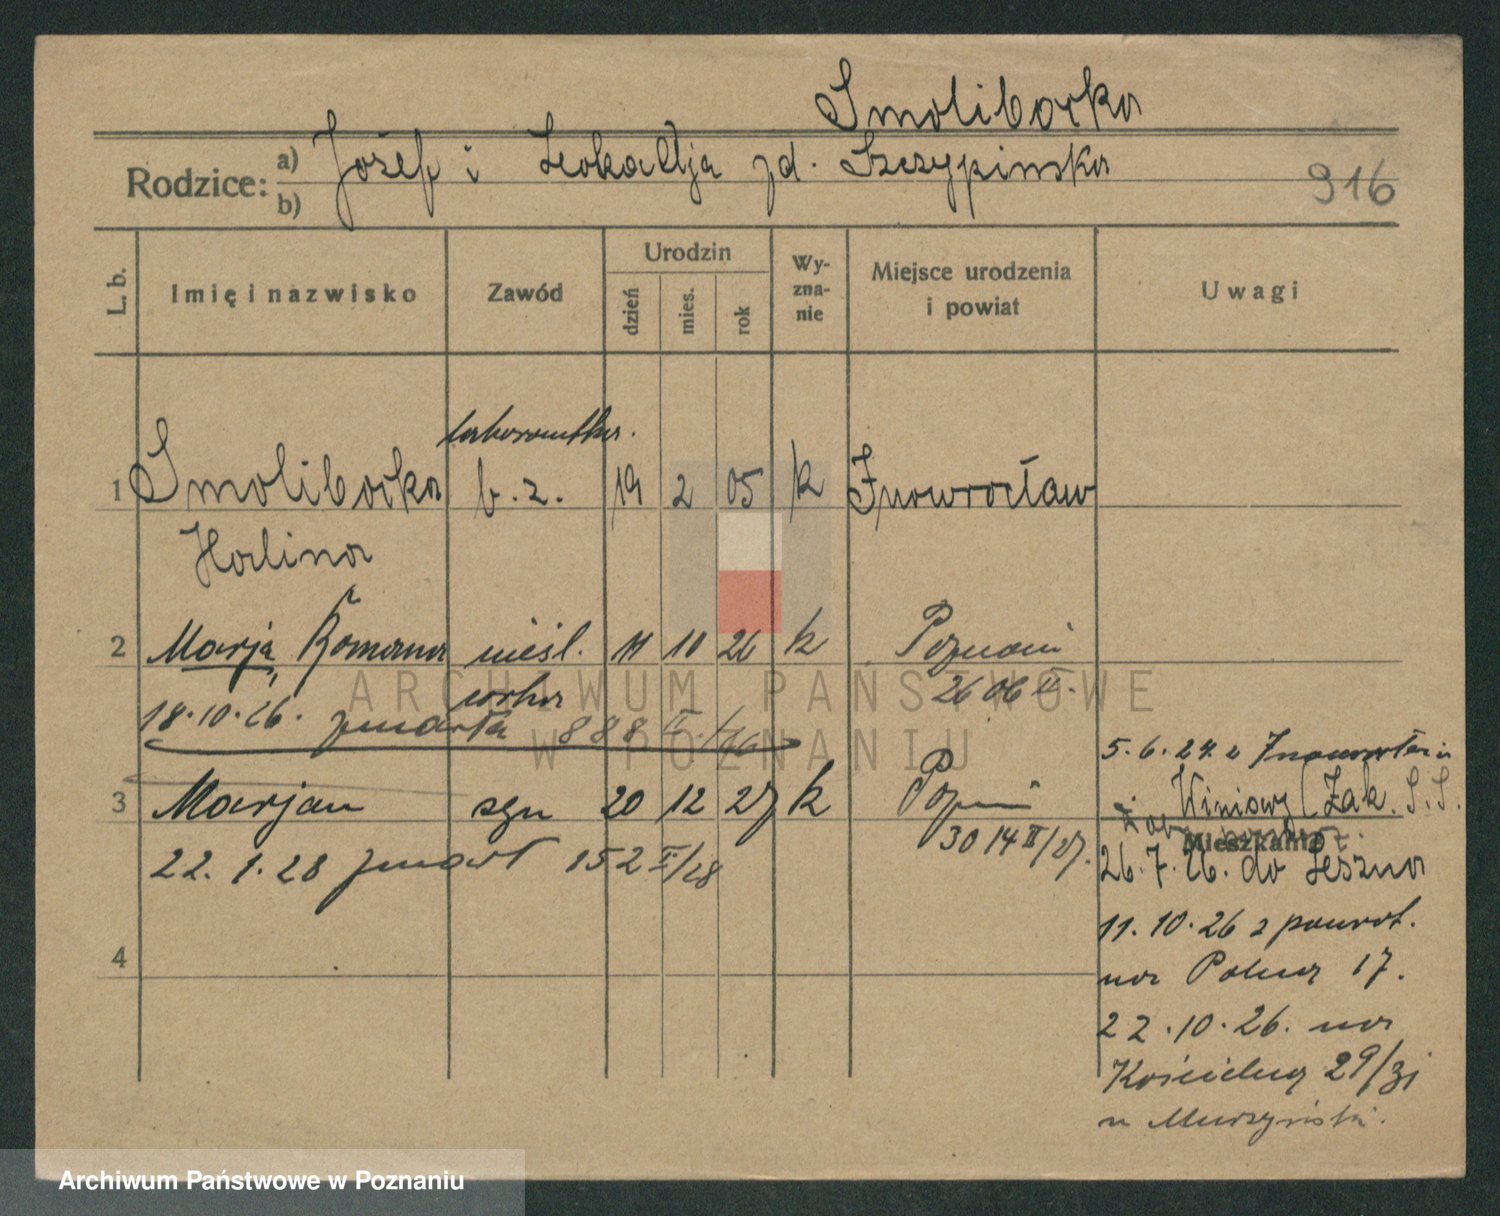 Smoliborka
Rodzice: a) Józef i Leokadja zd. Szczypinska
b)
916
L. b.
Imię i nazwisko
Zawód
Urodzin
dzień
mies.
rok
Wy-
zna-
nie
Miejsce urodzenia
i powiat
Uwagi
laborantka.
1 Smoliborka b. z. 19 2 05 k Inowrocław
Halina
2 Marja Romana nieśl. 11 10 26 k Poznań
córka 2606 II.
18.10.26. zmarła 888 II/26
5.6.24 z
3 Marjan syn 20 12 27 k Pozn
3014 II/27.
Winiary (Zak. S.S.
Mieszkanie
22.1.28 zmarł 152 II/28
26.7.26. do Leszna
11.10.26 z powrot.
4
na Polną 17.
22.10.26. na
Kościelną 29/31
u
ARCHIWUM PAŃSTWOWE
W POZNANIU
Archiwum Państwowe w Poznaniu